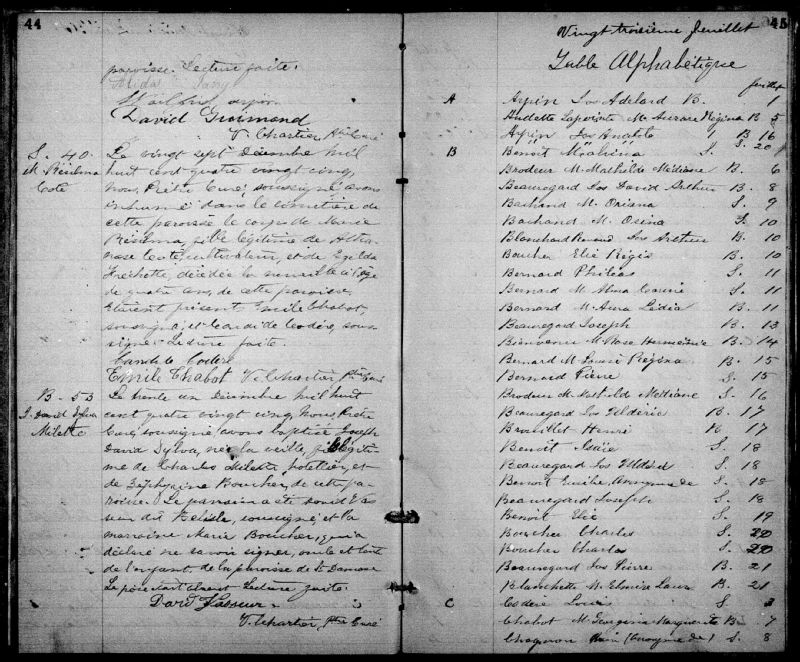 44
paroisse. Lecture faite.
David Graimond
V. Chartier Ptre Curé
S. 40.
M. Résilma
Coté
Le vingt sept Décembre mil
huit cent quatre vingt cinq,
nous, Prêtre Curé, soussigné avons
inhumé dans le cimetière de
cette paroisse le corps de Marie
Résilma, fille légitime de Atha
nase Coté, cultivateur, et de Exilda
Frechette, décédée la veille à l'âge
de quatre ans, de cette paroisse.
Etaient présent Emile Chabot,
soussigné, et Candide Codère, sous
signé. Lecture faite.
Candide Codère
Emile Chabot V. Chartier Ptre Curé
B - 53
J. David Sylva
Milette
Le trente un Décembre mil huit
cent quatre vingt cinq, Nous, Prêtre
Curé, soussigné, avons baptisé Joseph
David Sylva, né la veille, fils légiti-
me de Charles Milette hotellier, et
de Zéphyrine Boucher, de cette pa-
roisse. Le parrain a été David Vas
seur dit Belisle, soussigné, et la
marraine Marie Boucher, qui a
déclaré ne savoir signer, oncle et tante
de l'enfant, de la paroisse de St Damase
Le père étant absent Lecture faite.
David Vasseur
V. Chartier Ptre Curé
45
Vingt troisième feuillet
Table Alphabétique
feuillet
A Arpin Jos Adelard B. 1
Audette Lapointe M. Aurare Régina B 5
Arpin Jos Anatole B 16
B Benoît S. 20
Brodeur M. Mathilde Médiane B. 6
Beauregard Jos David Arthur B. 8
Bachand M. Oriana S. 9
Bachand M. Osina S. 10
Blanchard Renaud Jos Arthur B. 10
Boucher Elie Régis B. 10
Bernard Philéas S. 11
Bernard M. Alma Carrie S. 11
Bernard M. Aura Lédia B. 11
Beauregard Joseph B. 13
Bienvenue M. Rose Herménie B. 14
Bernard M. Laura Régina B. 15
Bernard Pierre S. 15
Brodeur M. Mathilde Médiane S. 16
Beauregard Jos Uldéric B. 17
Brouillet Henri B. 17
Benoît Isaïe S. 18
Beauregard Jos Uldéric S. 18
Benoît Emilie Anonyme de S. 18
Beauregard Joseph S. 18
Benoît Elie S. 19
Boucher Charles S. 20
Boucher Charles S. 20
Beauregard Jos Pierre B. 21
Blanchette M. Elmire Laura B. 21
C Codère Louis S 3
Chabot M. Georgina Marguerite B. 7
Chagnon (Anonyme de) S. 8